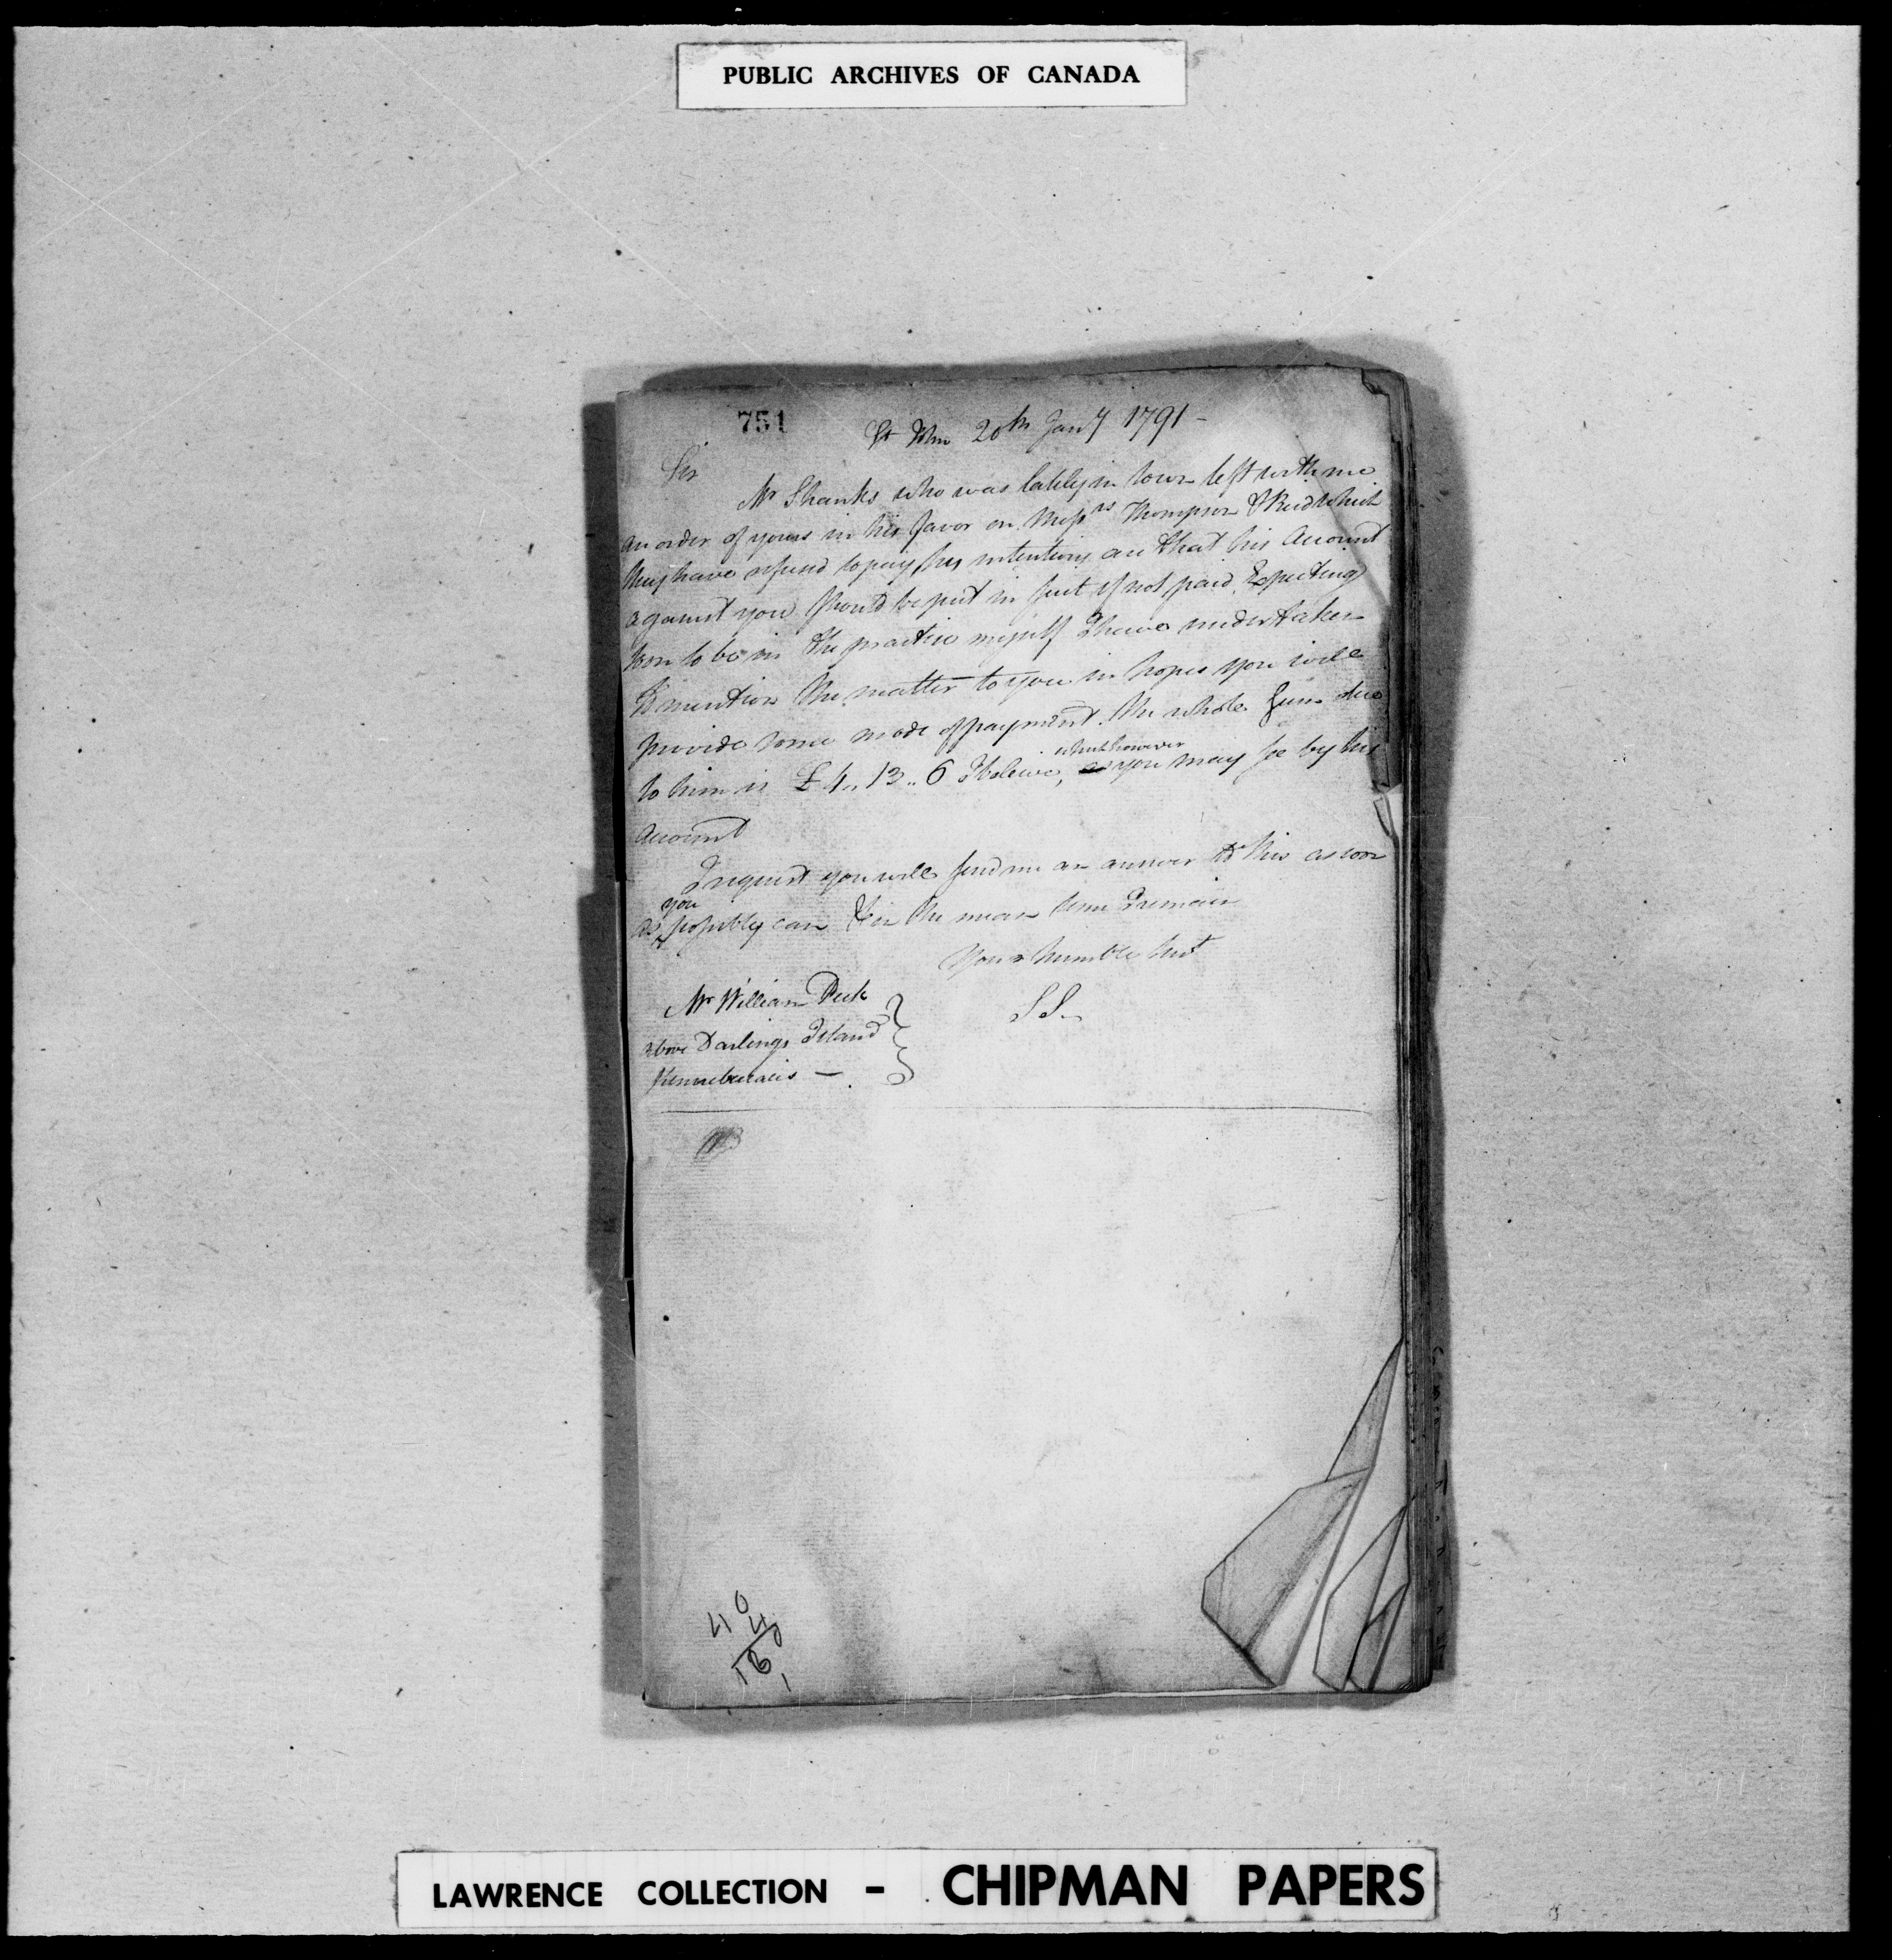 PUBLIC ARCHIVES OF CANADA
751
St John 20th Jany 1791 -
Sir
Mr Shanks who was lately in town left with me
an order of yours in his favor on Messrs Thompson & Reid which
they have refused to pay, his intentions are that his Account
against you should be put in suit if not paid, Expecting
soon to be in the practice myself I have undertaken
to mention the matter to you in hopes you will
provide some mode of payment. the whole sum due
to him is £4..13..6 I beleive, which however
as you may see by his
Account
I request you will send me an answer to this as soon
as you possibly can & in the mean time I remain
Your humble Servt
S S
Mr William Peck
above Darlings Island
Kennebeccacis —
4 0
4
16 0
1
LAWRENCE COLLECTION - CHIPMAN PAPERS